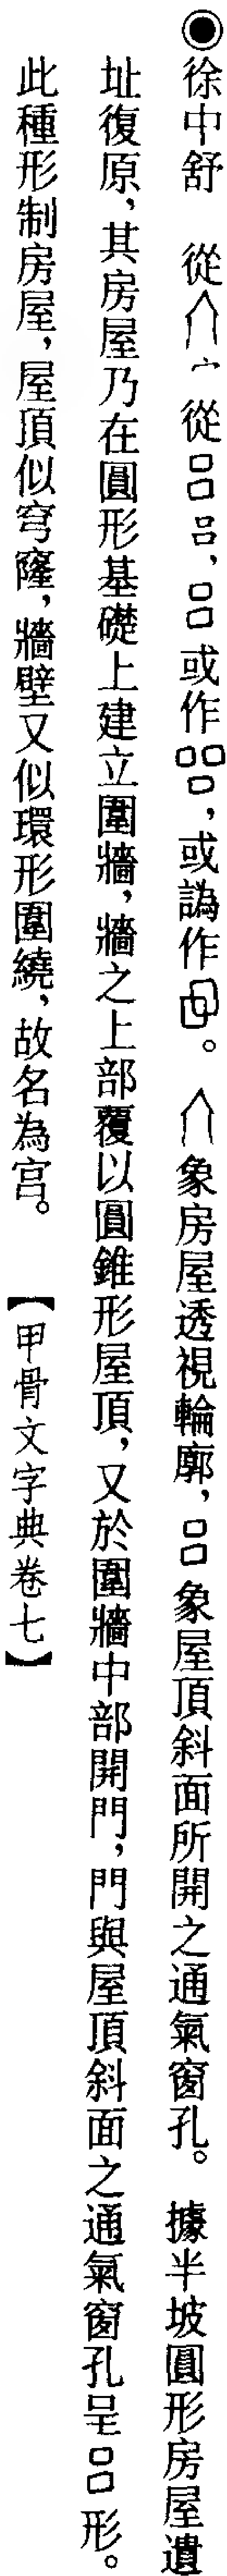 ◉徐中舒　從宀從吕,或作,或譌作。象房屋透視輪廓,象屋頂斜面所開之通氣窗孔。據半坡圓形房屋遺
址復原,其房屋乃在圓形基礎上建立圍牆,牆之上部覆以圓錐形屋頂,又於圍牆中部開門,門與屋頂斜面之通氣窗孔呈形。
此種形制房屋,屋頂似穹窿,牆壁又似環形圍繞,故名為宫。【甲骨文字典卷七】